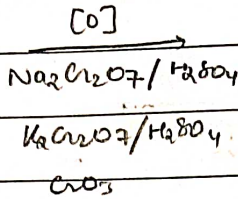 [O]
Na2Cr2O7/H2SO4
K2Cr2O7/H2SO4
CrO3